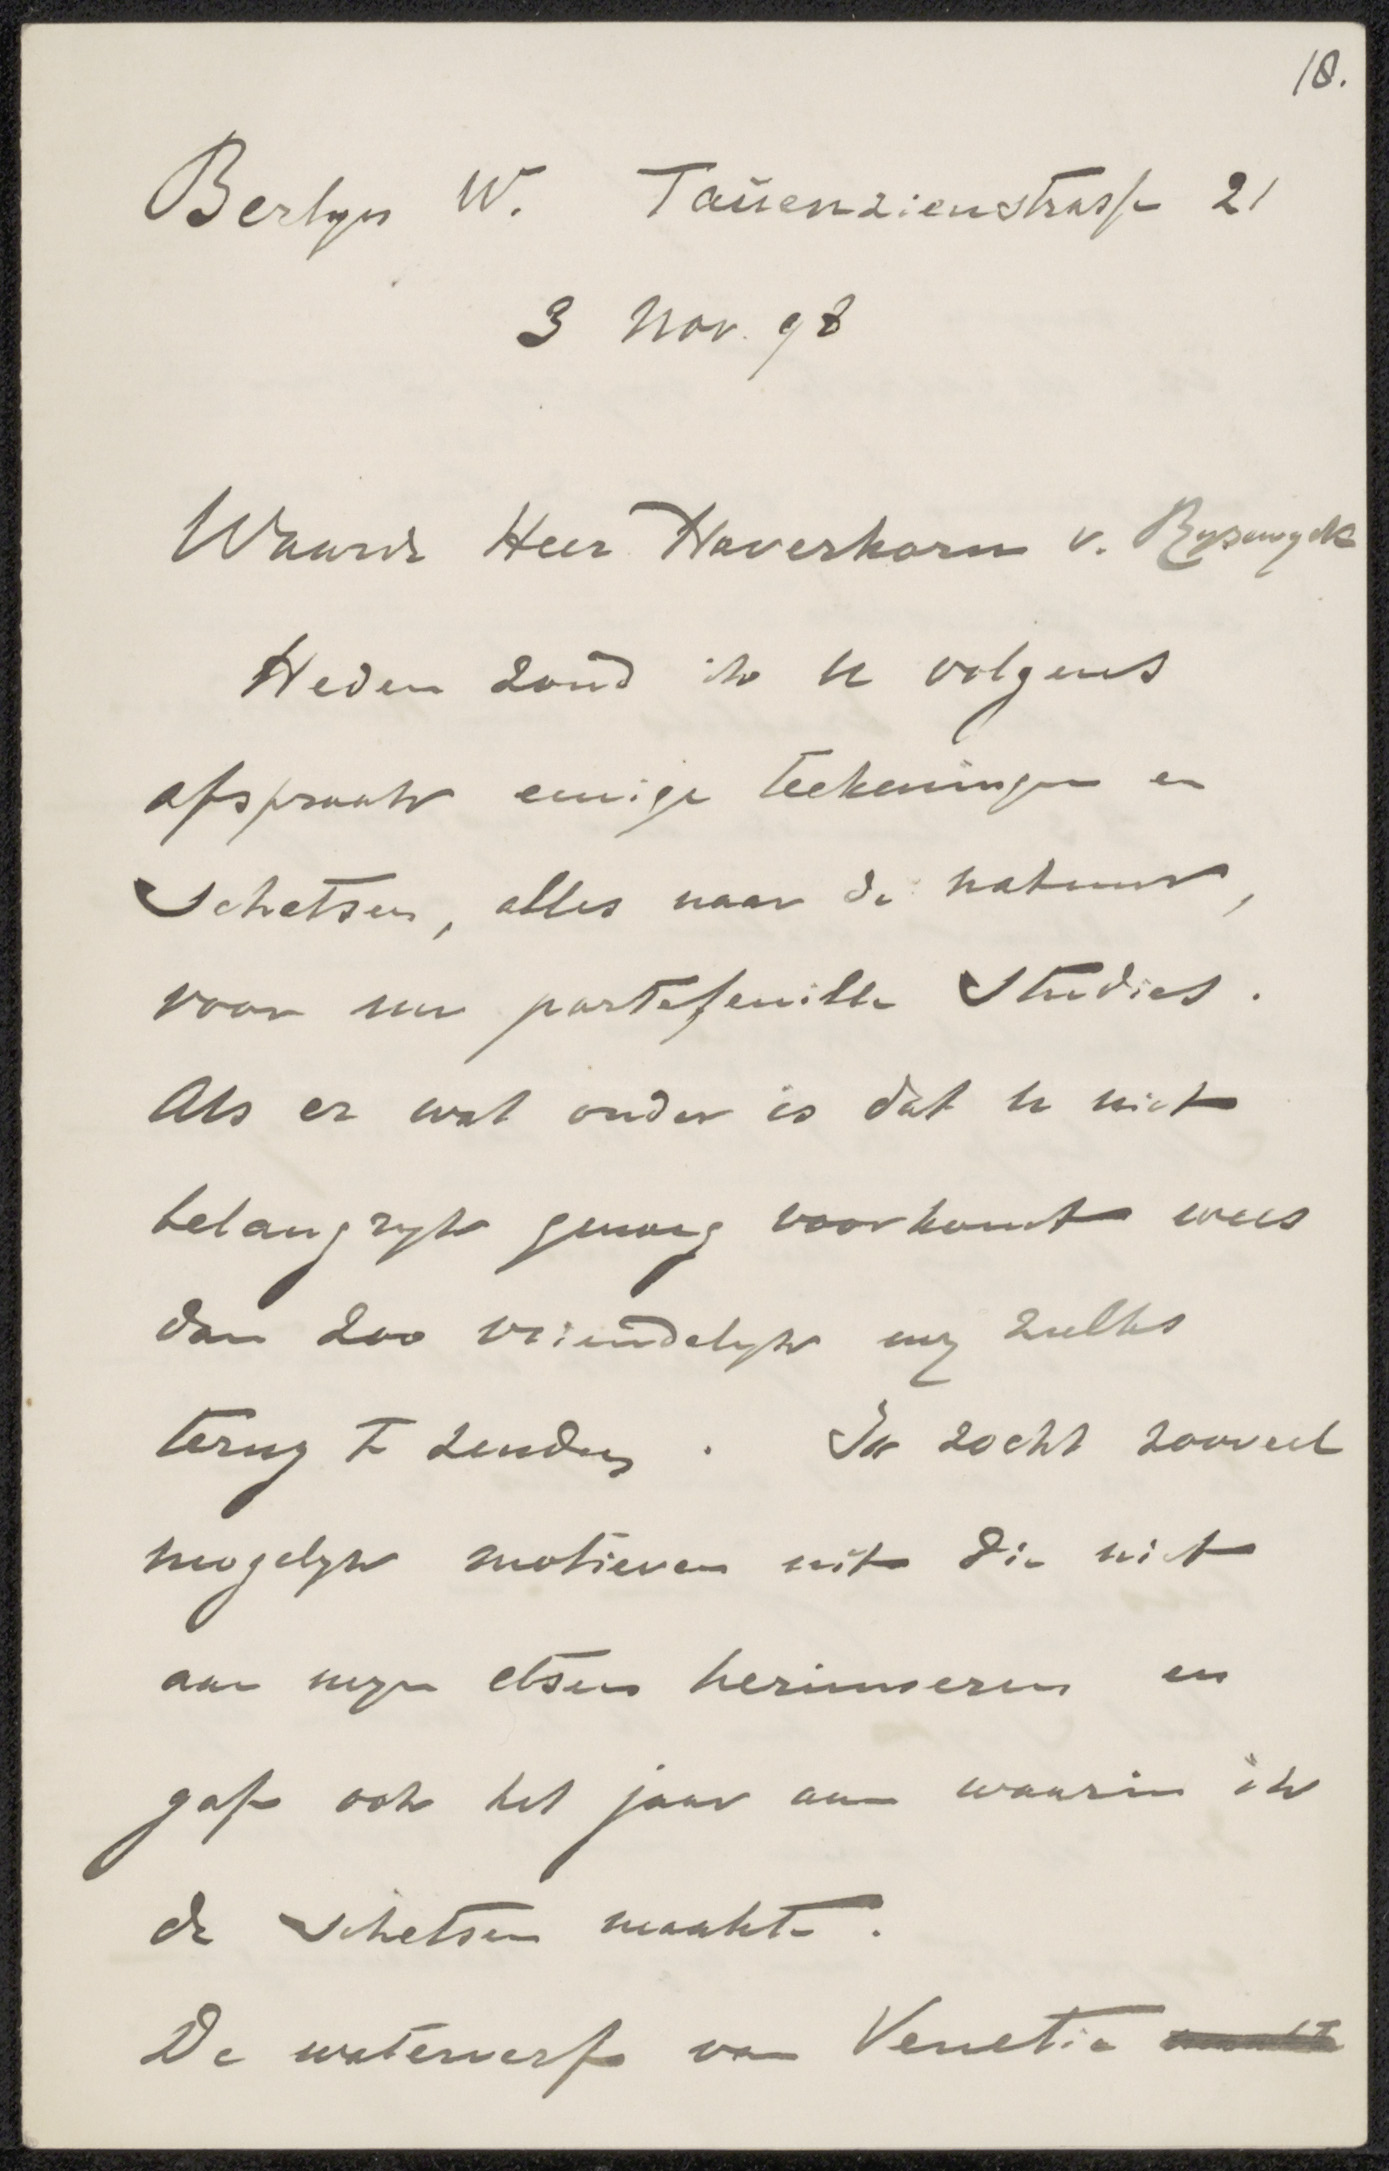 18.
Berlyn W. Tauenzienstrasse 21
3 Nov. 98
Waarde Heer Haverkorn v. Rysewyck
Heden zond ik U volgens
afspraak eenige teekeningen en
schetsen, alles naar de natuur,
voor uw portefeuille studies.
Als er wat onder is dat U niet
belangryk genoeg voorkomt wees
dan zoo vriendelyk my zulks
terug te zenden. Ik zocht zooveel
mogelyk motieven uit die niet
aan myn etsen herinneren en
gaf ook het jaar aan waarin ik
de schetsen maakte.
De waterverf van Venetie